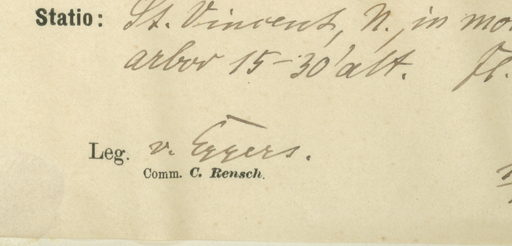 Statio: St. Vincent, N., in mo
arbor 15-30' alt. Fl.
Leg. v. Eggers.
Comm. C. Rensch.